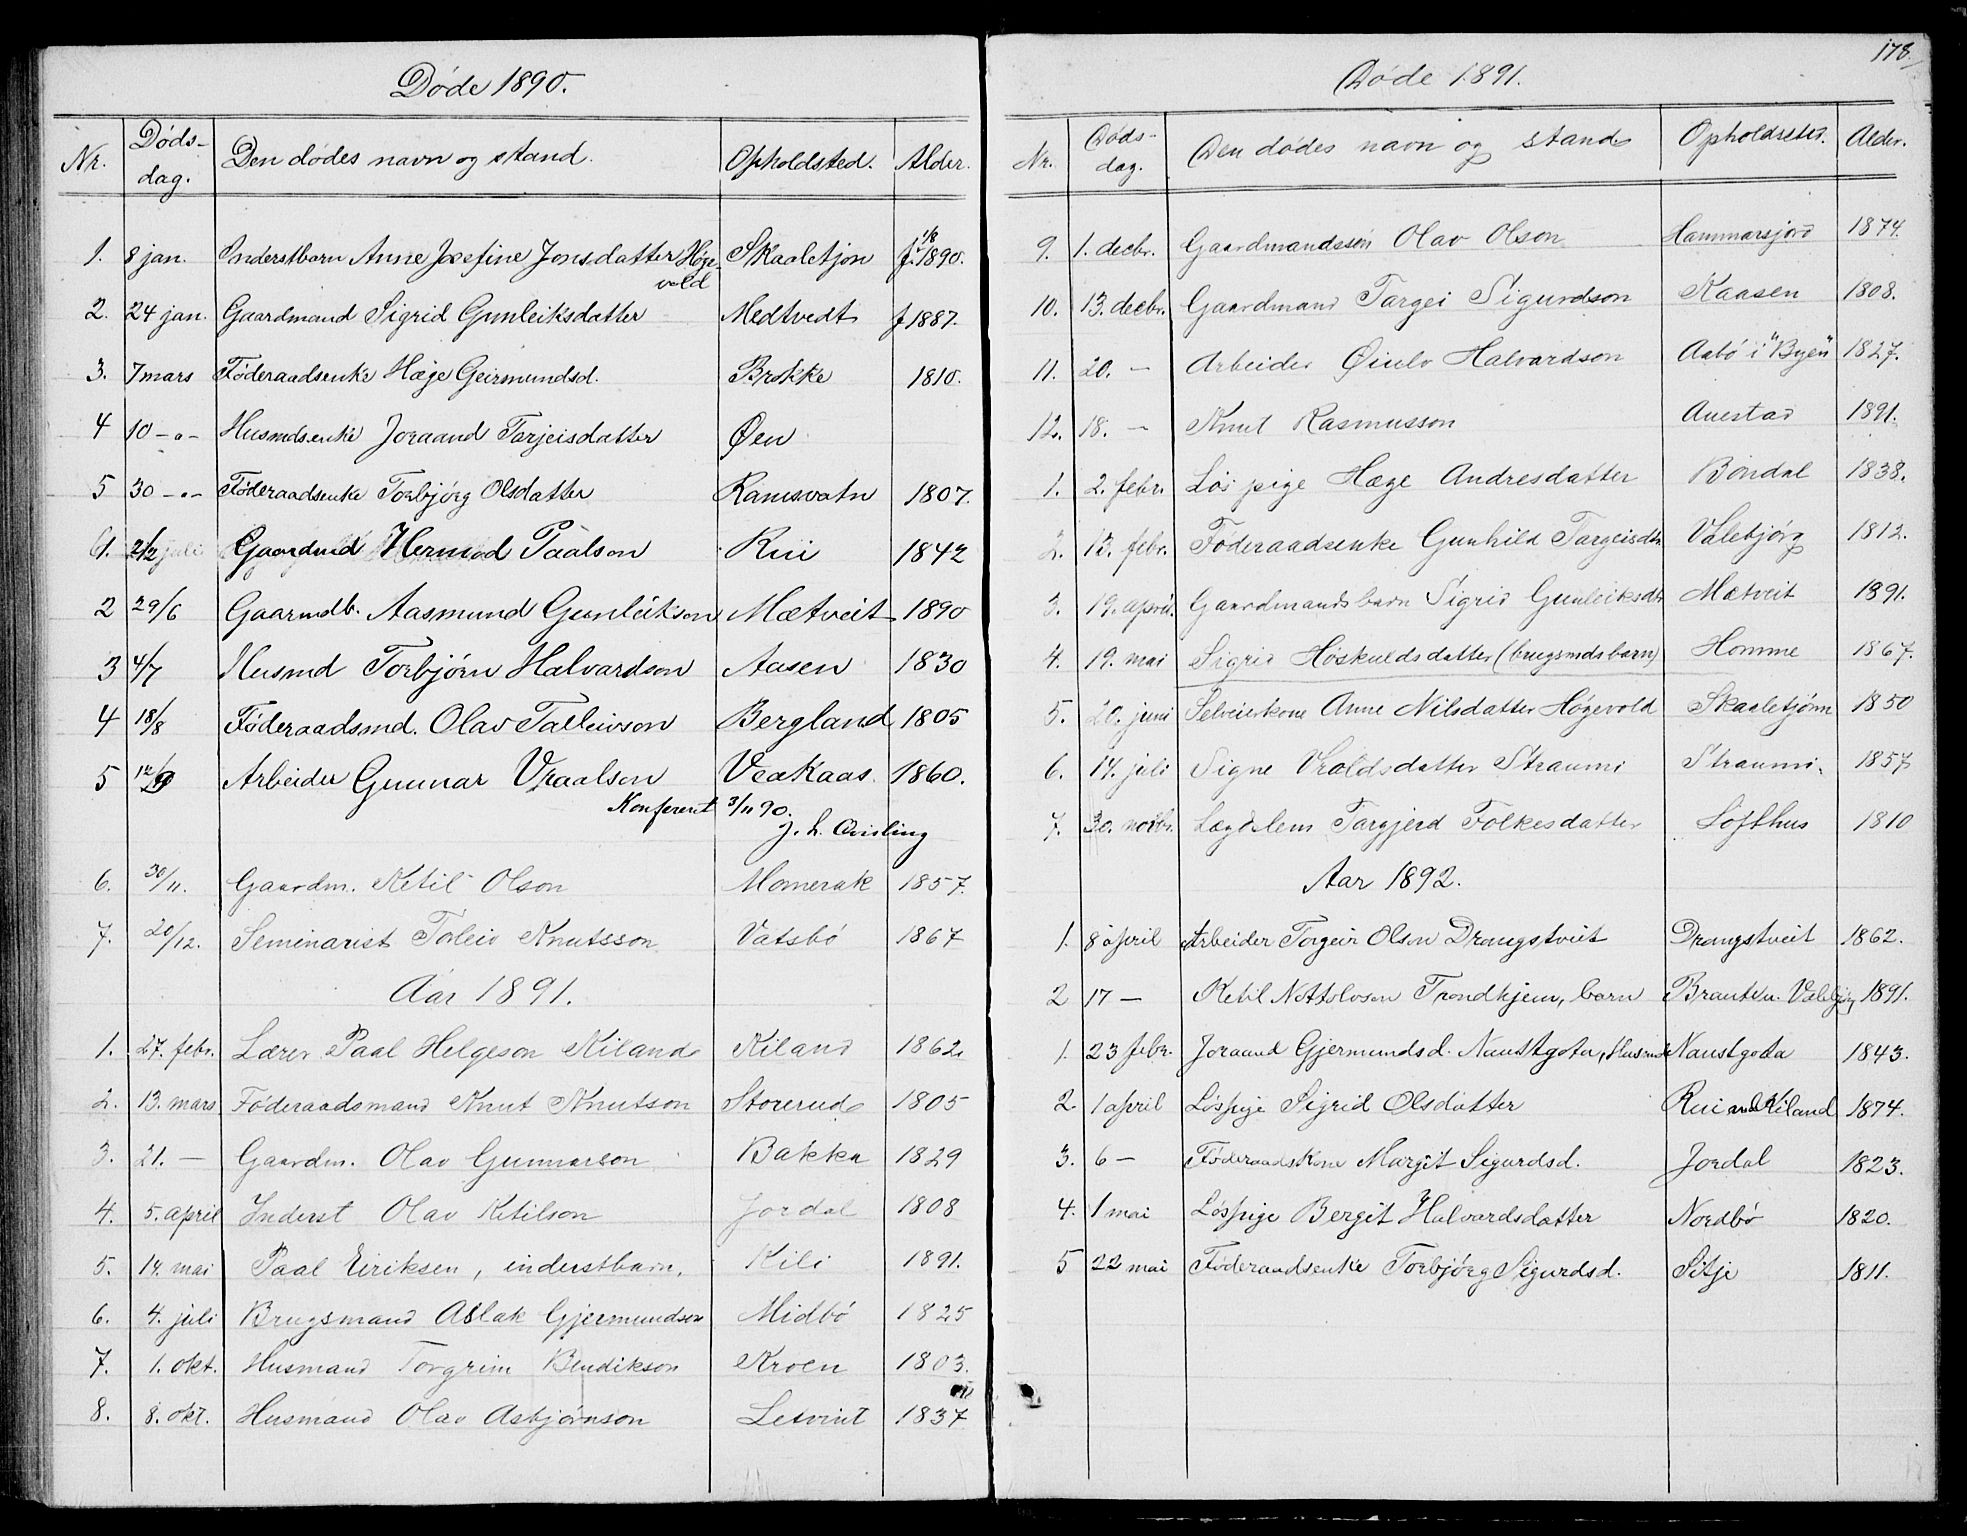 Døde 1890.
Nr. Døds-dag. Den dødes navn og stand. Opholdsted. Alder.
1. 8 jan. Inderstbarn Anne Josefine Jonsdatter Høge- Skaaletjøn f. 1/8 1890.
vold
2. 24 jan. Gaardmand Sigrid Gunleiksdatter Medtvedt f 1887.
3. 7 mars Føderaadsenke Hæge Geirmundsd. Brokke 1810.
4 10 -„- Husmdsenke Joraand Tarjeisdatter Øen
5 30 -„- Føderaadsenke Torbjørg Olsdatter Ramsvatn 1807.
1. 2/2 Gaardmd Hermod Paalson Rui 1842
2 29/6 Gaarmdb. Aasmund Gunleikson Mætveit 1890
3 4/7 Husmd Torbjørn Halvardson Aasen 1830
4 18/8 Føderaadsmd. Olav Talleivson Bergland 1805
5 12/9 Arbeider Gunnar Vraalson Veakaas 1860.
Konferert 3/11 90.
J. L. Qvisling
6. 30/11. Gaardm. Ketil Olson Momrak 1857.
7. 20/12. Seminarist Torleiv Knutsson Vatsbø 1867
Aar 1891.
1. 27. febr. Lærer Paal Helgeson Kiland Kiland 1862.
2. 13. mars Føderaadsmand Knut Knutson Storerud 1805
3. 21. — Gaardm. Olav Gunnarson Bakka 1829
4. 5. april Inderst Olav Ketilson Jordal 1808
5. 14. mai Paal Eiriksen, inderstbarn. Kili 1891.
6. 4. juli Brugsmand Aslak Gjermundson Midbø 1825
7. 1. okt. Husmand Torgrim Bendikson Kroen 1803.
8. 8. okt. Husmand Olav Asbjørnson Letvint 1837
178.
Døde 1891.
Nr. Døds-dag. Den dødes navn og stand Opholdssted. Alder.
9. 1. decbr. Gaardmandssøn Olav Olson Hammarsjord 1874.
10. 13. decbr. Gaardmand Targei Sigurdson Kaasen 1808.
11. 20. — Arbeider Øiulv Halvardson Aabø i "Byen" 1827.
12. 18. — Knut Rasmusson Auestad 1891.
1. 2. febr. Løs pige Hæge Andresdatter Bondal 1838.
2. 12. febr. Føderaadsenke Gunhild Targeisdtr Valebjørg 1812.
3. 19. april. Gaardmandsbarn Sigrid Gunleiksdtr Mætveit 1891.
4. 19. mai Sigrid Høskuldsdatter (brugsmdsbarn) Homme 1867.
5. 20. juni Selveierkone Anne Nilsdatter Høgevold Skaaletjønn 1850
6. 14. juli Signe Vraldsdatter Straumi Straumi. 1857
7. 30. novbr. Lægdslem Targjerd Folkesdatter Lofthus 1810
Aar 1892.
1. 8 april Arbeider Torgeir Olson Drangstveit Drangstveit 1862.
2 17 — Ketil Nottolvson Trondhjem, barn Brauten. Valebjørg 1891.
1. 23 febr. Joraand Gjermundsd. Naustgota, Husmk Naustgota 1843.
2 1 april Løspige Sigrid Olsdatter Rui Kiland 1874.
3. 6 — Føderaadskone Margit Sigurdsd. Jordal 1823.
4. 1 mai Løspige Bergit Halvardsdatter Nordbø 1820.
5 22 mai Føderaadsenke Torbjørg Sigurdsd. Sitje 1811.